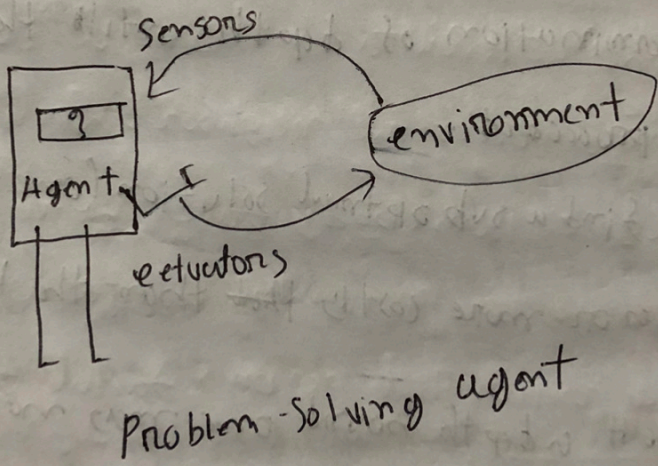 Sensors
environment
?
Agent
eetuators
Problem-Solving agent